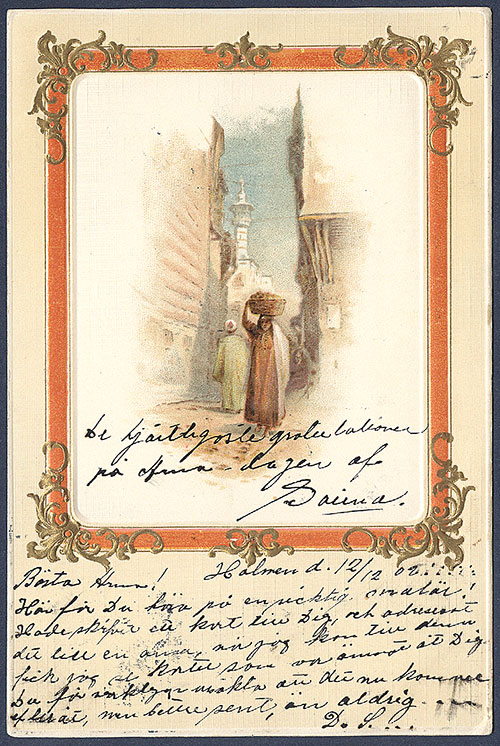 De hjärtligaste gratulationer
på Anna-dagen af
Baima.
Holmen d. 12/12 02
Bästa Anna!
Här får Du höra på en rigtig
Hade skrifvit ett kort till Dig, och adresserat
det till en anna, när jag kom till denna
fick jag se kortet som var ämnat åt Dig
Du får nu kommer
efteråt, men bättre sent, än aldrig
D. S....